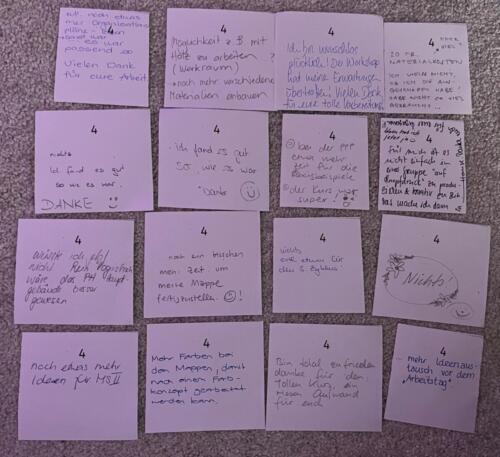 evt. noch etwas
mer Organisation
war
es war
passend so
Vielen Dank
für eure Arbeit
4
Möglichkeit z.B. mit
Holz zu arbeiten?
(Werkraum)
→ noch mehr verschiedene
Materialien anbauen
4
Ich bin wunschlos
glücklich! Der Workshop
hat meine Erwartungen
übertroffen! Vielen Dank
für eine tolle Vorbereitung
4
ODER
VIEL
20 FR.
MATERIALKOSTEN
ICH WEISS NICHT,
OB ICH DIE
HABE
HABE NICHT SO VIEL
GEBRAUCHT
4
nichts
Ich fand es gut
so wie es war.
DANKE
4
Ich fand es gut
so, wie es war
Danke
4
bei der PPP
etwas mehr
zeit für die
Praxisbeispiele
der Kurs war
super!
4
für mich ist es
nicht einfach in
einer Gruppe "auf
" zu
& kreativ zu
das mache ich dann
4
wüsste ich
nicht
wäre das PH
gebäude besser
gewesen
4
noch ein bisschen
mehr Zeit um
meine Mappe
fertigzustellen.
4
nichts
evtl. etwas für
den 3. Zyklus
4
Nichts
4
noch etwas mehr
Ideen für MS II
4
Mehr Farben bei
den Mappen, damit
nach einem Farb-
konzept gearbeitet
werden kann.
4
Bin total zufrieden
danke für den
tollen Kurs, ein
riesen Aufwand
für euch
4
mehr Ideenaus-
tausch vor dem
"Arbeitstag"